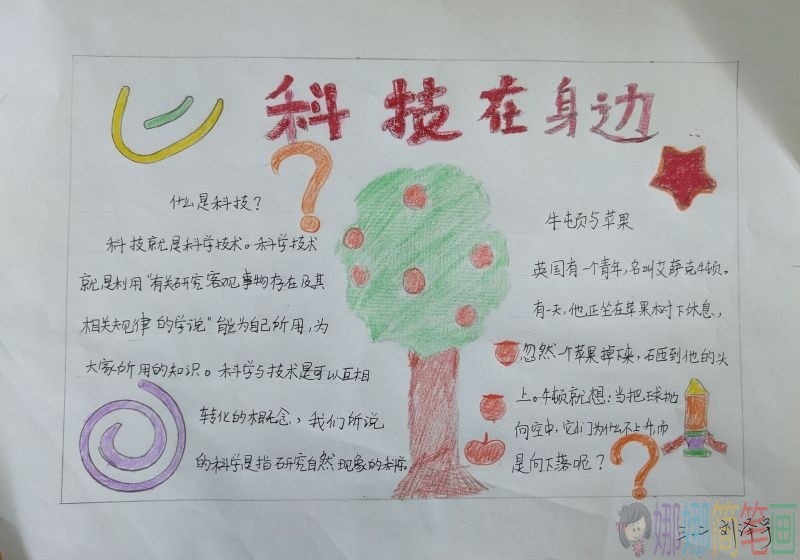 科技在身边
什么是科技？
科技就是科学技术。科学技术
就是利用“有关研究客观事物存在及其
相关规律的学说”能为自己所用，为
大家所用的知识。科学与技术是可以互相
转化的概念，我们所说
的科学是指研究自然现象的
牛顿与苹果
英国有一个青年，名叫艾萨克牛顿。
有一天，他正坐在苹果树下休息，
忽然一个苹果掉下来，砸到他的头
上。牛顿就想：当把球抛
向空中，它们为什么不上升而
是向下落呢？
三二 刘泽宇
娜娜简笔画